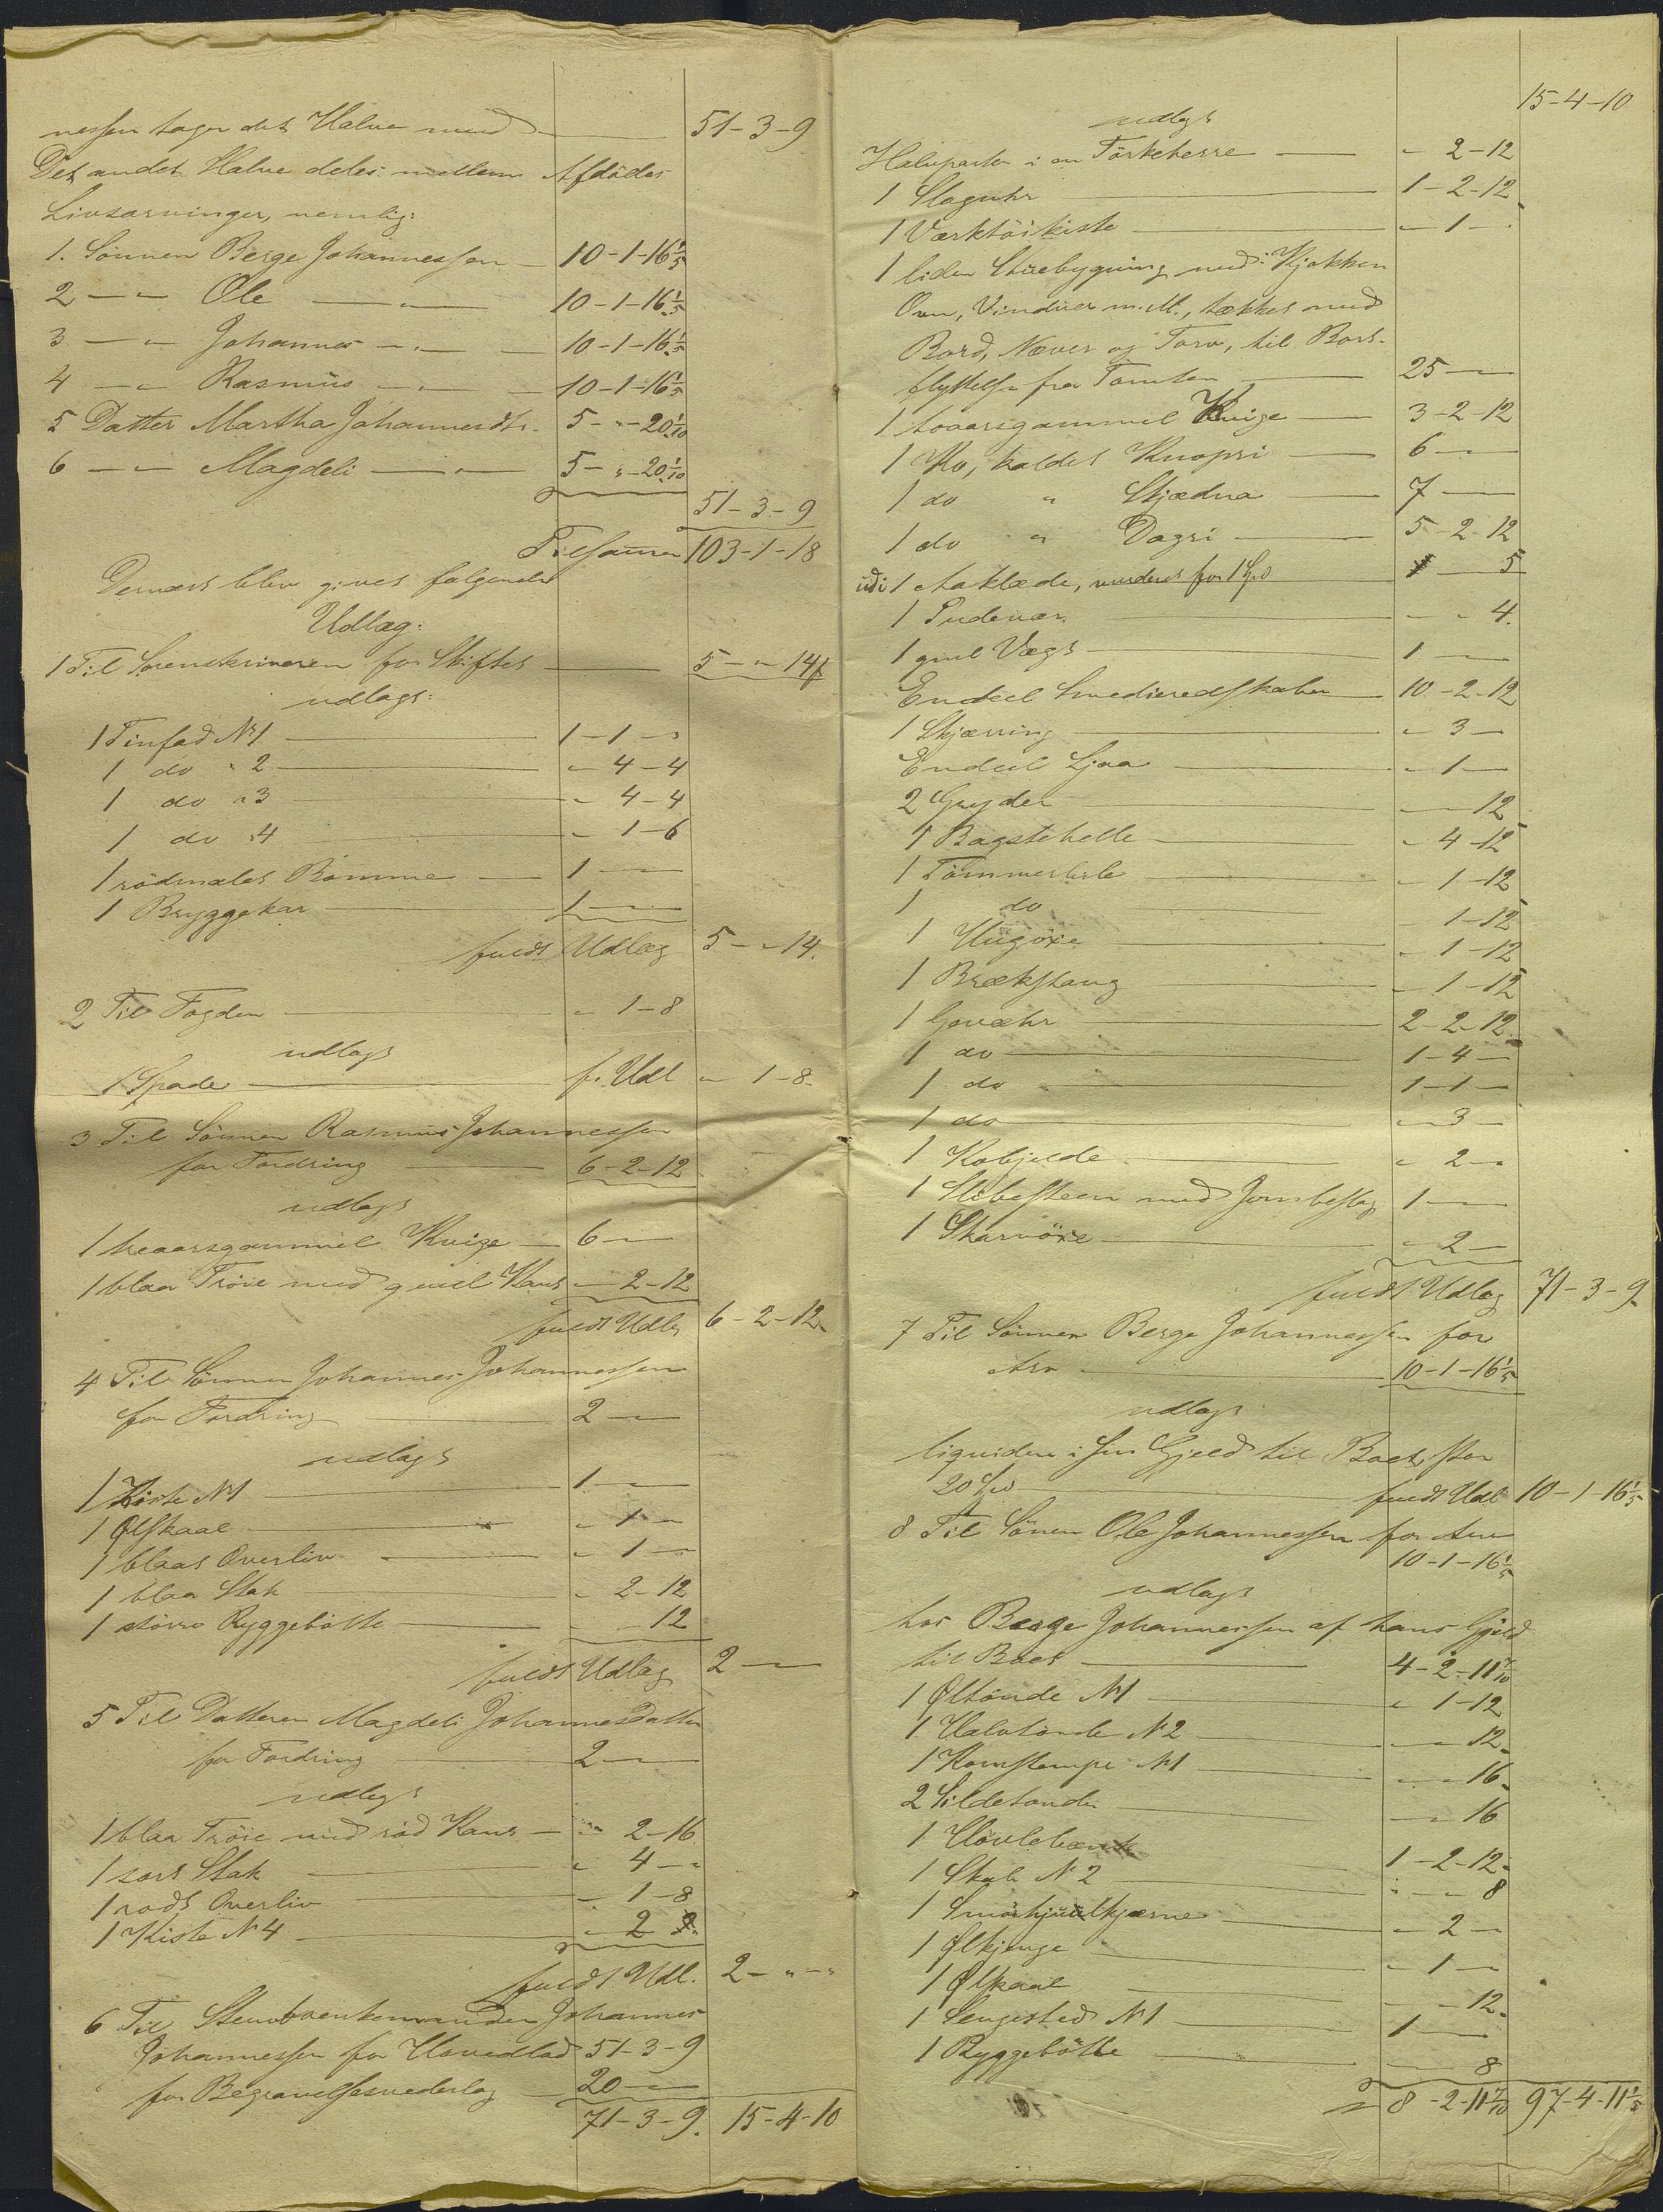 nessen tager det Halve med — 51-3-9
Det andet Halve deles mellem Afdødes
Livsarvinger, nemlig:
1. Sønnen Berge Johannessen — 10-1-16 1/5
2 — " — Ole — " — 10-1-16 1/5
3 — " — Johannes — " — 10-1-16 1/5
4 — " — Rasmus — " — 10-1-16 1/5
5 Datter Martha Johannesdtr. 5-"-20 1/10
6 — " — Magdeli — " — 5-"-20 1/10
51-3-9
Tilsammen 103-1-18
Dernæst blev givet følgende
Udlæg:
1 Til Sorenskriveren for Skiftet — 5-"-14
udlagt:
1 Tinfad No 1 — 1-1-"
1 do " 2 — "-4-4
1 do " 3 — "-4-4
1 do " 4 — "-1-6
1 rødmalet Bomme — 1 —
1 Bryggekar — 1 —
fuldt Udlæg 5-"-14.
2 Til Fogden — "-1-8
udlagt
1 Spade — f. Udl "-1-8.
3 Til Sønnen Rasmus Johannessen
for Fordring — 6-2-12
udlagt
1 treaarsgammel Kvige — 6 —
1 blaa Trøie med gueel Kant "-2-12
fuldt Udlæg 6-2-12.
4 Til Sønnen Johannes Johannessen
for Fordring — 2 —
udlagt
1 Kiste No 1 — 1 —
1 Ølskaal — "-1-"
1 blaat Overliv — "-1 —
1 blaa Stak — "-2-12
1 større Ryggebøtte — "-"-12
fuldt Udlæg 2 —
5 Til Datteren Magdeli Johannesdatter
for Fordring — 2 —
udlagt
1 blaa Trøie med rød Kant — "-2-16
1 sort Stak — "-4-"
1 rødt Overliv — "-1-8
1 Kiste No 4 — "-2
fuldt Udl. 2-"-"
6 Til Stervboenkemanden Johannes
Johannessen for Hovedlod 51-3-9
for Begravelsesvederlag — 20 —
71-3-9. 15-4-10
15-4-10
udlagt
Halvparten i en Tørkehesse — "-2-12
1 Slaguhr — 1-2-12
1 Værktøikiste — "-1-"
1 liden Stuebygning med Kjøkken
Ovn, Vinduer m. M., tækket med
Bord, Næver og Torv, til Bort-
flyttelse fra Tomten — 25 —
1 toaarsgammel Kvige — 3-2-12
1 Ko, kaldet Knopri — 6 —
1 do " Skjædna — 7 —
1 do " Dagri — 5-2-12
udi 1 Aaklæde, vurderet for 1 Spd — 5
1 Pudevar — "-"-4.
1 gml Vægt — 1 —
Endeel Smedieredskaber — 10-2-12
1 Skjæring — "-3 —
Endeel Ljaa — "-1 —
2 Gryder — "-"-12
1 Bagstehelle — "-4-12
1 Tømmerbile — "-1-12
1 do — "-1-12
1 Hugøxe — "-1-12
1 Brækstang — "-1-12
1 Gevæhr — 2-2-12
1 do — 1-4 —
1 do — 1-1 —
1 do — "-3 —
1 Kobjelde — "-2-"
1 Slibesteen med Jernbeslag 1 —
1 Skarvøxe — "-2 —
fuldt Udlæg 71-3-9.
7 Til Sønnen Berge Johannessen for
Arv — 10-1-16 1/5
udlagt
liquideres i sin Gjeld til Boet, stor
20 Spd — fuldt Udl 10-1-16 1/5
8 Til Sønnen Ole Johannessen for Arv
10-1-16 1/5
udlagt
hos Berge Johannessen af hans Gjeld
til Boet — 4-2-11 7/10
1 Øltønde No 1 — "-1-12
1 Halvtønde No 2 — "-"-12
1 Kornstampe No 1 — "-"-16
2 Sildetønder — "-"-16
1 Høvlebænk — 1-2-12
1 Skab No 2 — "-"-8
1 Smørhjuulkjærne — "-2-"
1 Ølkjenge — "-1-"
1 Ølskaal — "-"-12.
1 Sengested No 1 — 1 —
1 Ryggebøtte — "-"-8
8-2-11 7/10 97-4-11 1/5